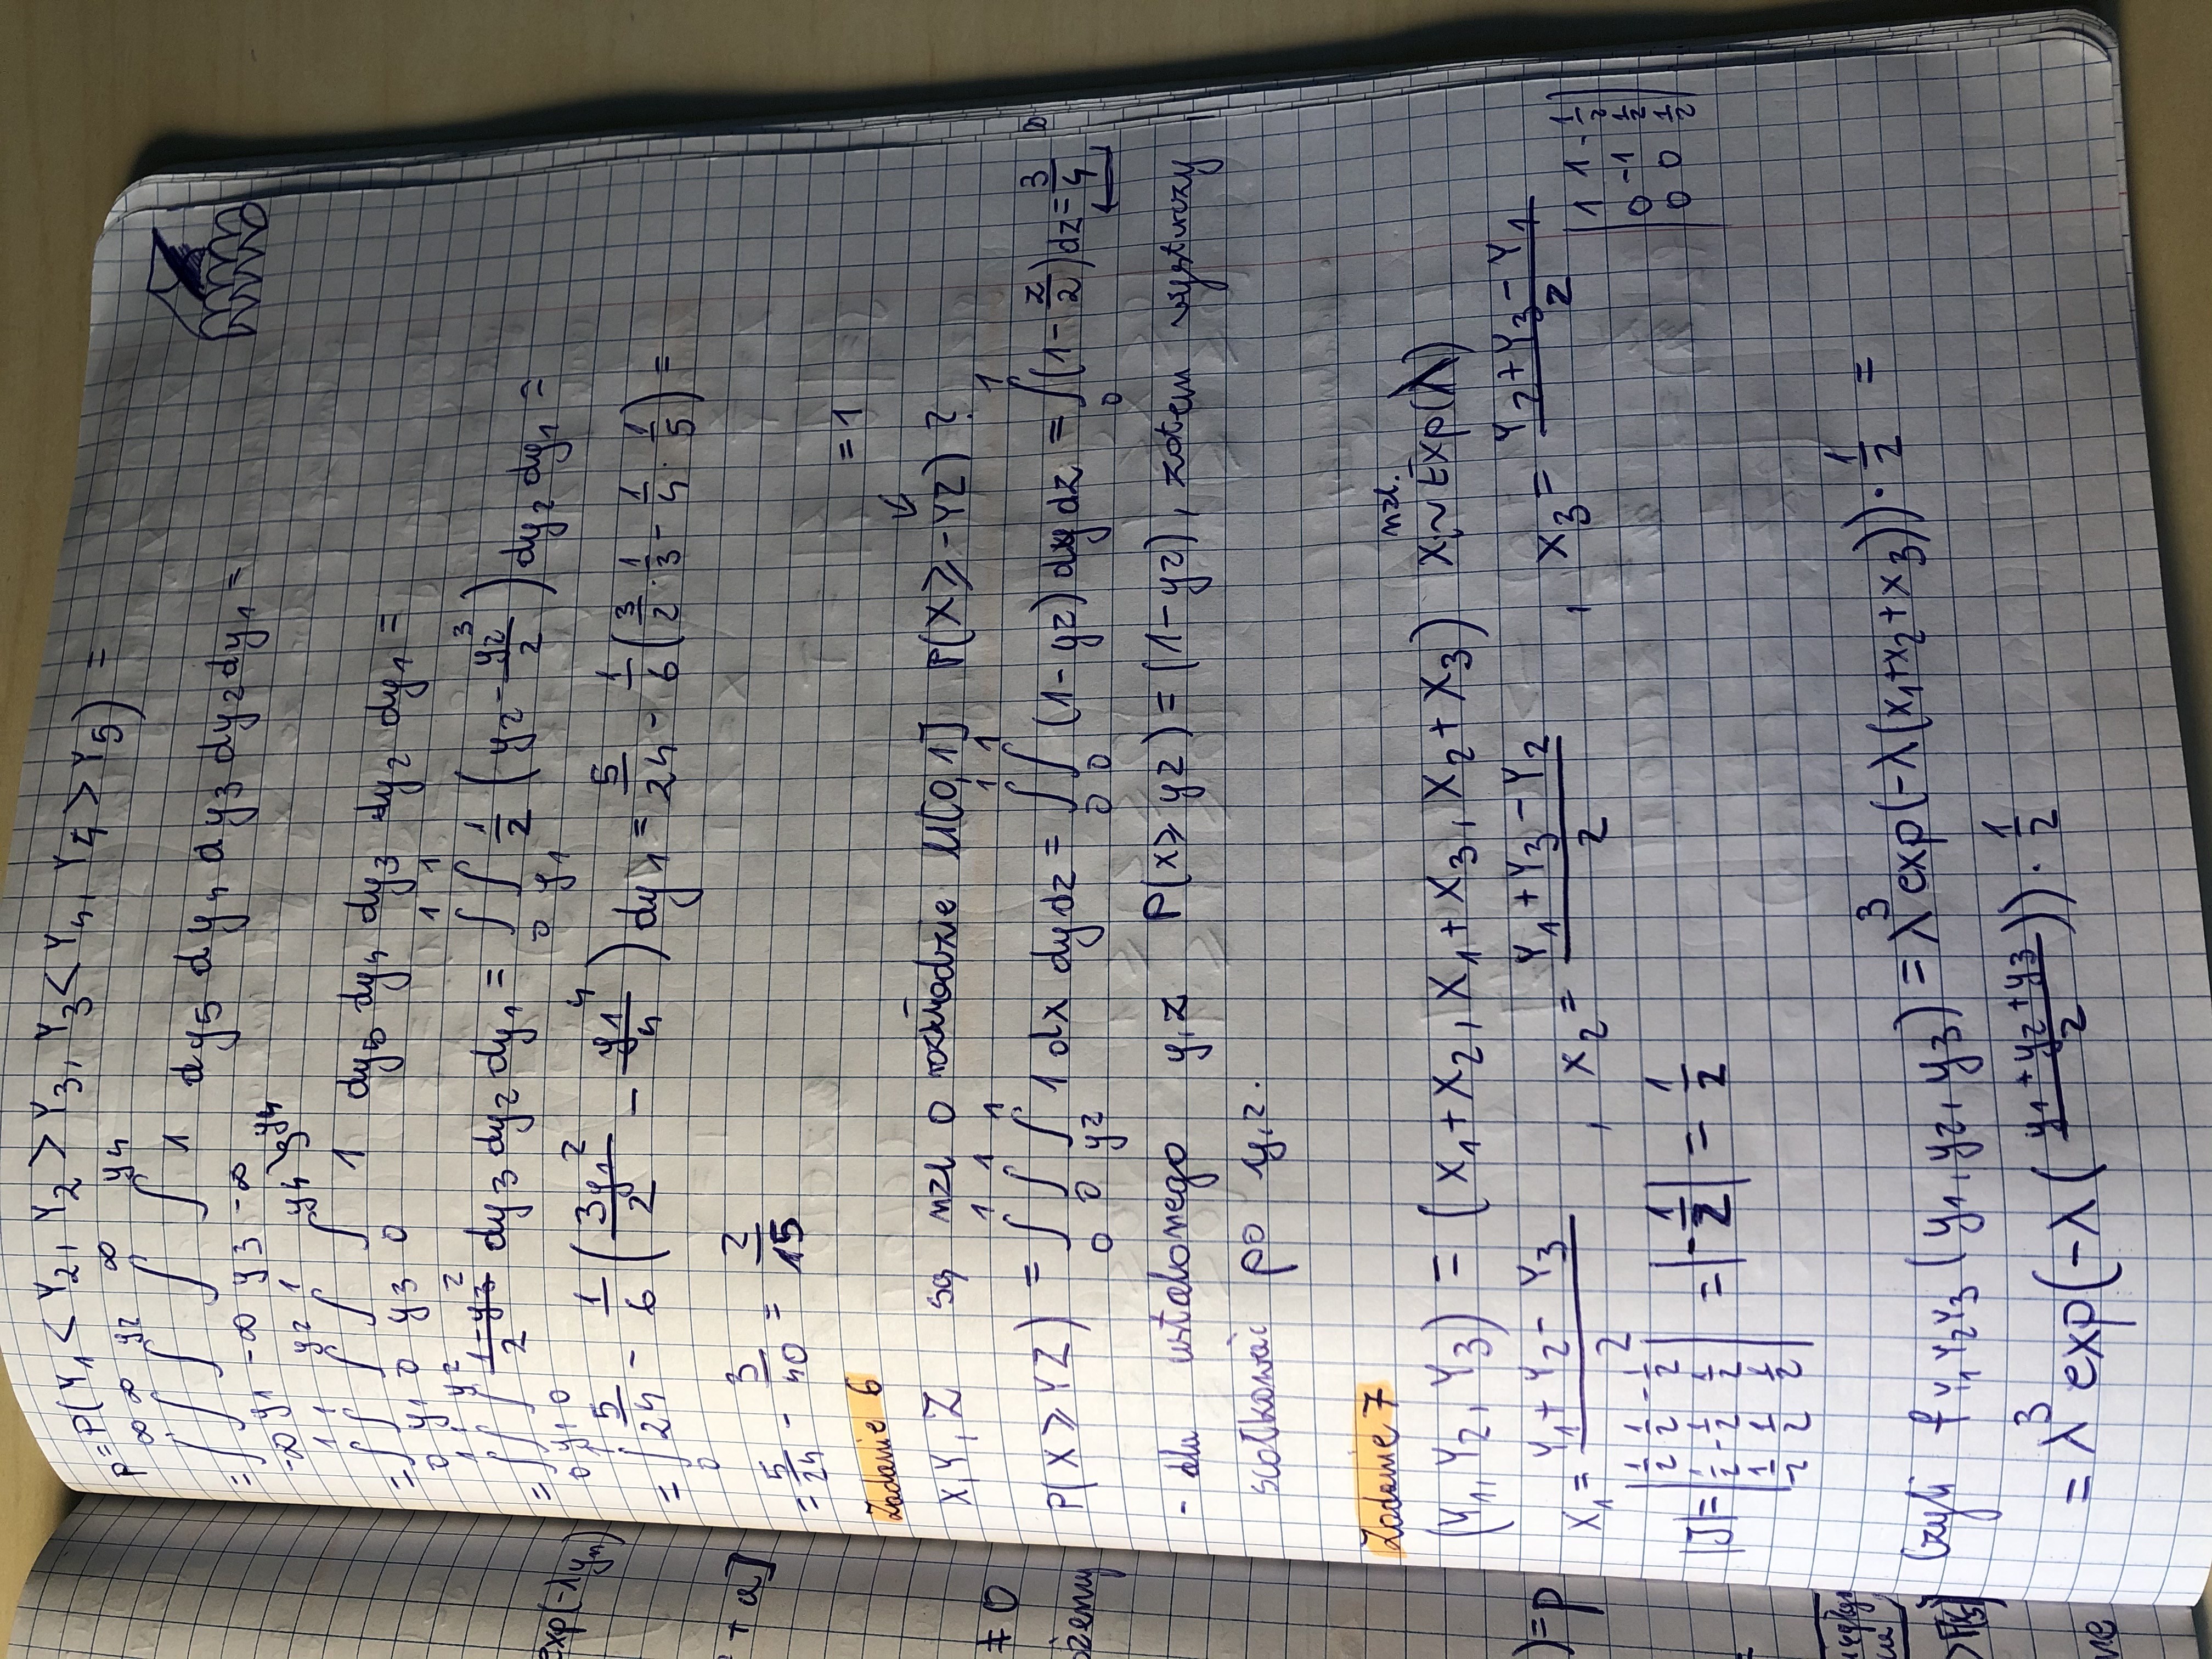 P=P(Y₁<Y₂, Y₂>Y₃, Y₃<Y₄, Y₄>Y₅) =
= ∫_{-∞}^{∞} ∫_{y₁}^{∞} ∫_{-∞}^{y₂} ∫_{y₃}^{∞} ∫_{-∞}^{y₄} 1 dy₅ dy₄ dy₃ dy₂ dy₁ =
= ∫_0^1 ∫_{y₁}^1 ∫_0^{y₂} ∫_{y₃}^1 ∫_0^{y₄} 1 dy₅ dy₄ dy₃ dy₂ dy₁ =
= ∫_0^1 ∫_{y₁}^1 ∫_0^{y₂} (1-y₃²)/2 dy₃ dy₂ dy₁ = ∫_0^1 ∫_{y₁}^1 1/2 (y₂ - y₂³/2) dy₂ dy₁ =
= ∫_0^1 5/24 - 1/6 (3y₁²/2 - y₁⁴/4) dy₁ = 5/24 - 1/6 (3/2 · 1/3 - 1/4 · 1/5) =
= 5/24 - 3/40 = 2/15
Zadanie 6
= 1
X, Y, Z są nzl o rozkładzie U[0,1] P(X ≥ -YZ) ?
P(X ≥ YZ) = ∫_0^1 ∫_0^1 ∫_{yz}^1 1 dx dy dz = ∫_0^1 ∫_0^1 (1-yz) dy dz = ∫_0^1 (1 - z/2) dz = 3/4
- dla ustalonego y,z P(x ≥ yz) = (1-yz), zatem wystarczy
scałkować po y,z.
Zadanie 7
(Y₁, Y₂, Y₃) = (X₁+X₂, X₁+X₃, X₂+X₃) nzl. Xᵢ ~ Exp(λ)
X₁ = (Y₁+Y₂-Y₃)/2 , X₂ = (Y₁+Y₃-Y₂)/2 , X₃ = (Y₂+Y₃-Y₁)/2
|1 1 -1/2|
|0 -1 1/2|
|0 0 1/2|
|J| = |1/2 1/2 -1/2; 1/2 -1/2 1/2; -1/2 1/2 1/2| = |-1/2| = 1/2
Czyli f_{Y₁Y₂Y₃}(y₁, y₂, y₃) = λ³ exp(-λ(x₁+x₂+x₃)) · 1/2 =
= λ³ exp(-λ((y₁+y₂+y₃)/2)) · 1/2
exp(-λyₙ)
+ a]
≠ 0
)=p